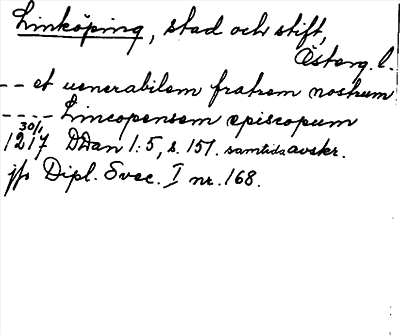 Linköping, stad och stift,
Österg. l.
-- et uenerabilem fratrem nostrum
---- Lincopensem episcopum
30/1
1217 DDan 1:5, s. 151. samtida avskr.
jfr Dipl. Svec. I nr. 168.